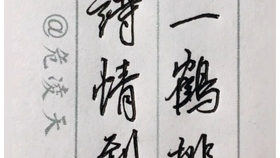 一鹤排
诗情到
@危凌天